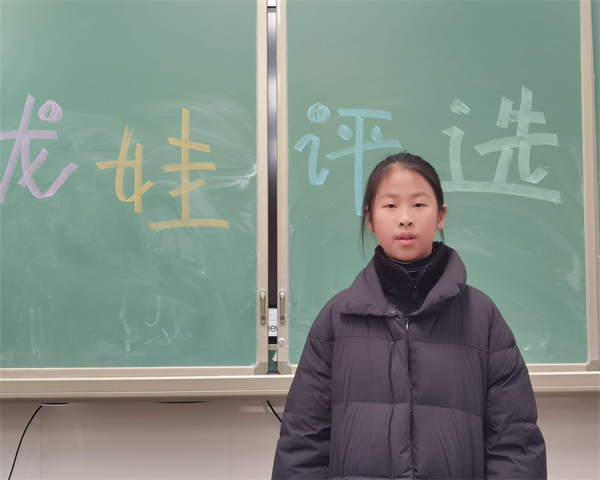 龙娃评选